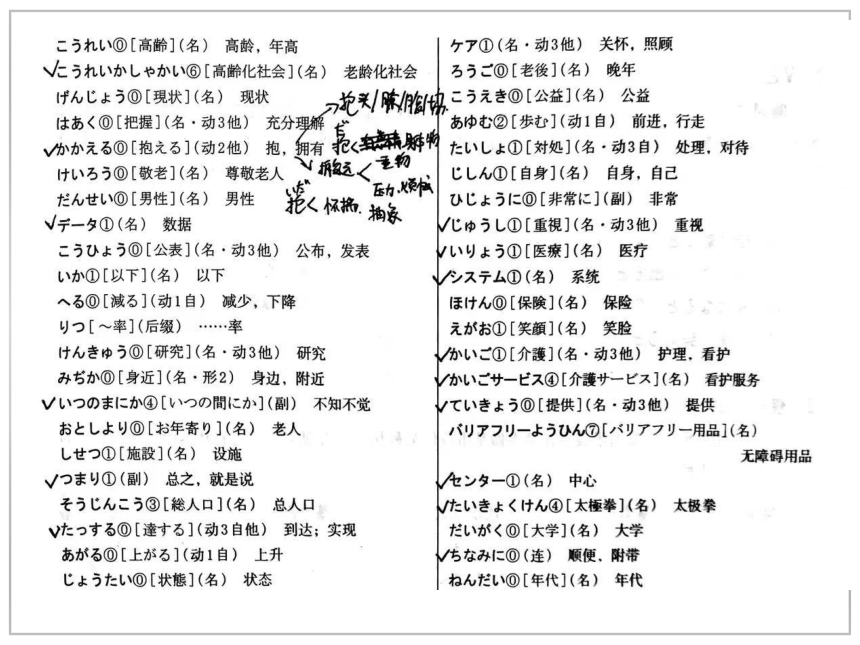 こうれい⓪[高齢](名) 高龄，年高
✓こうれいかしゃかい⑥[高齢化社会](名) 老龄化社会
げんじょう⓪[現状](名) 现状
はあく⓪[把握](名・动3他) 充分理解
✓かかえる⓪[抱える](动2他) 抱，拥有
けいろう⓪[敬老](名) 尊敬老人
だんせい⓪[男性](名) 男性
✓データ①(名) 数据
こうひょう⓪[公表](名・动3他) 公布，发表
いか①[以下](名) 以下
へる⓪[減る](动1自) 减少，下降
りつ[～率](后缀) ……率
けんきゅう⓪[研究](名・动3他) 研究
みぢか⓪[身近](名・形2) 身边，附近
✓いつのまにか④[いつの間にか](副) 不知不觉
おとしより⓪[お年寄り](名) 老人
しせつ①[施設](名) 设施
✓つまり①(副) 总之，就是说
そうじんこう③[総人口](名) 总人口
✓たっする⓪[達する](动3自他) 到达；实现
あがる⓪[上がる](动1自) 上升
じょうたい⓪[状態](名) 状态
→抱头
だ
抱く
重物
压力
抽象
いだ
抱く 怀揣.
ケア①(名・动3他) 关怀，照顾
ろうご⓪[老後](名) 晚年
こうえき⓪[公益](名) 公益
あゆむ②[歩む](动1自) 前进，行走
たいしょ①[対処](名・动3自) 处理，对待
じしん①[自身](名) 自身，自己
ひじょうに⓪[非常に](副) 非常
✓じゅうし①[重視](名・动3他) 重视
✓いりょう①[医療](名) 医疗
✓システム①(名) 系统
ほけん⓪[保険](名) 保险
えがお①[笑顔](名) 笑脸
✓かいご①[介護](名・动3他) 护理，看护
✓かいごサービス④[介護サービス](名) 看护服务
✓ていきょう⓪[提供](名・动3他) 提供
バリアフリーようひん⑦[バリアフリー用品](名)
无障碍用品
✓センター①(名) 中心
✓たいきょくけん④[太極拳](名) 太极拳
だいがく⓪[大学](名) 大学
✓ちなみに⓪(连) 顺便、附带
ねんだい⓪[年代](名) 年代